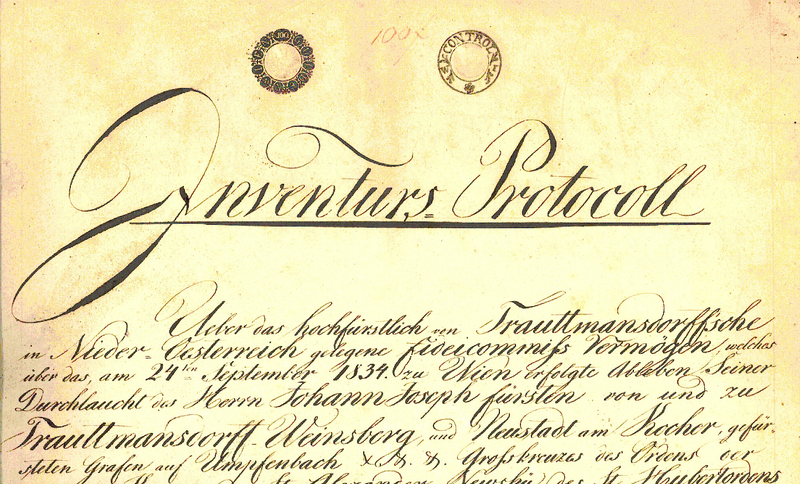 100x
CONTROL
Inventurs Protocoll
Ueber das hochfürstlich von Trauttmansdorffsche
in Nieder-Oesterreich gelegene Fideicommiß Vermögen, welches
über das, am 24ten September 1834. zu Wien erfolgte Ableben Seiner
Durchlaucht des Herrn Johann Joseph Fürsten von und zu
Trauttmansdorff-Weinsberg, und Neustadt am Kocher, gefür-
steten Grafen auf Umpfenbach &. &. &. Großkreuzes des Ordens der
St. Alexander Newsky des St. Hubertordens